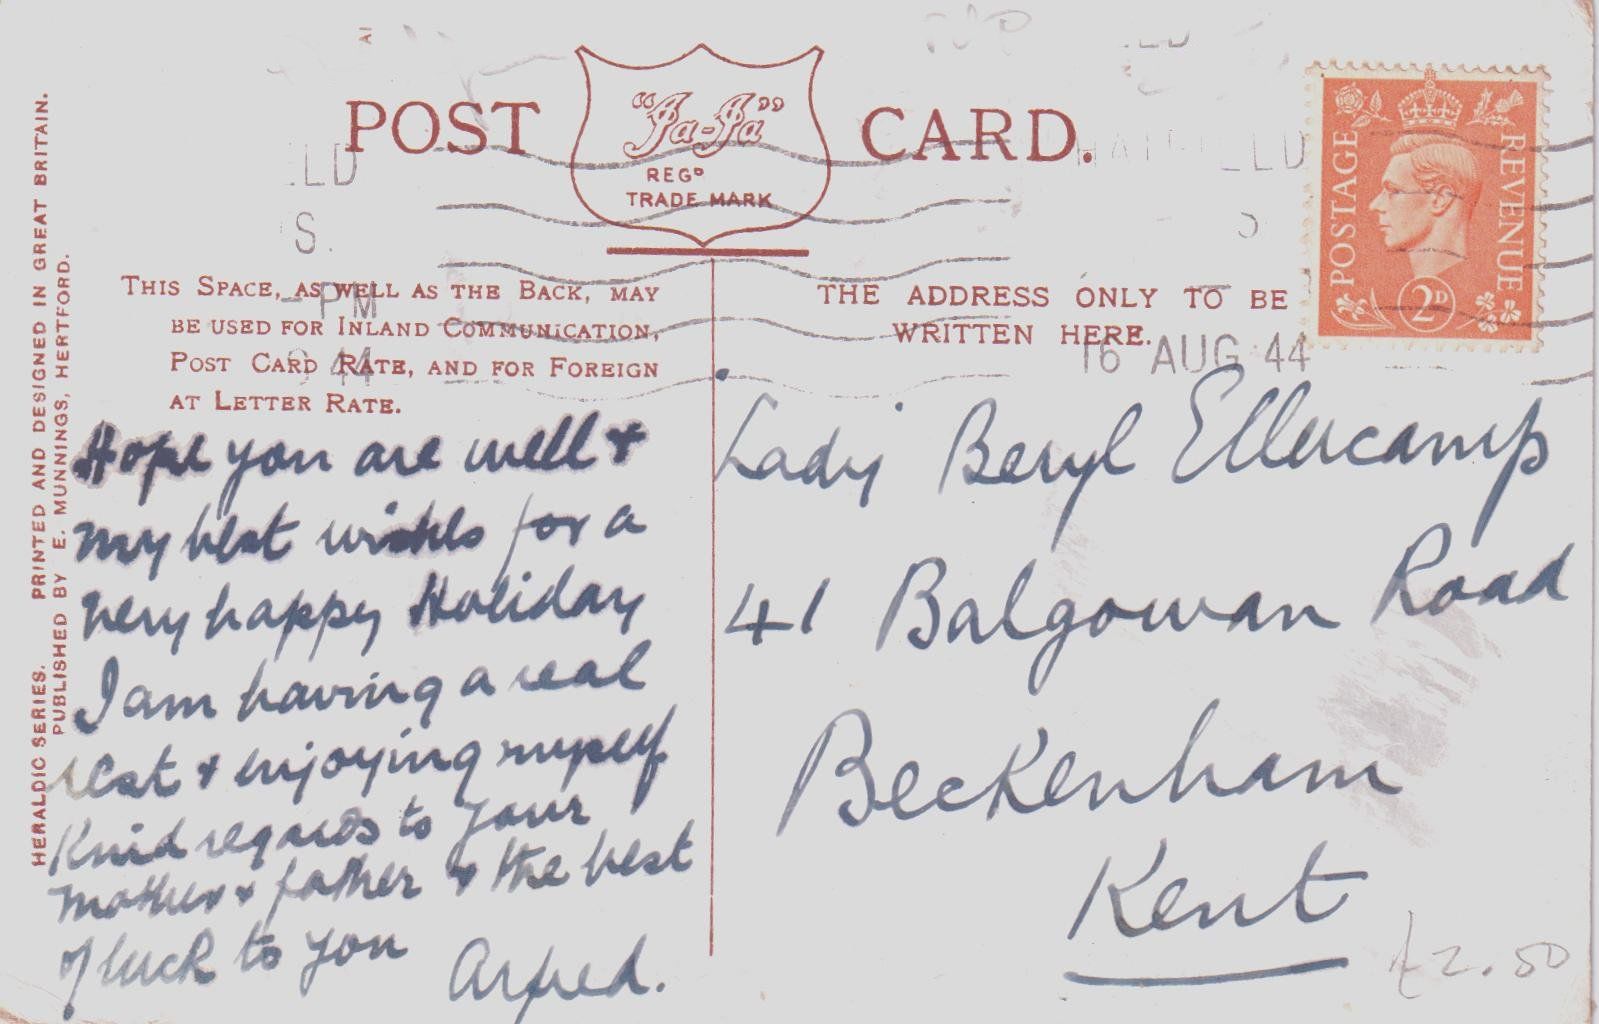 POST CARD.
"Pa-Pa"
REGD
TRADE MARK
HATFIELD
LD
S.
S
-PM
44
16 AUG 44
POSTAGE
REVENUE
2D
THIS SPACE, AS WELL AS THE BACK, MAY
BE USED FOR INLAND COMMUNICATION,
POST CARD RATE, AND FOR FOREIGN
AT LETTER RATE.
THE ADDRESS ONLY TO BE
WRITTEN HERE.
HERALDIC SERIES. PRINTED AND DESIGNED IN GREAT BRITAIN.
PUBLISHED BY E. MUNNINGS, HERTFORD.
Hope you are well +
my best wishes for a
very happy Holiday
I am having a real
rest + enjoying myself
Kind regards to your
mother + father + the best
of luck to you
Lady Beryl Ellercamp
41 Balgowan Road
Beckenham
Kent
£2.50